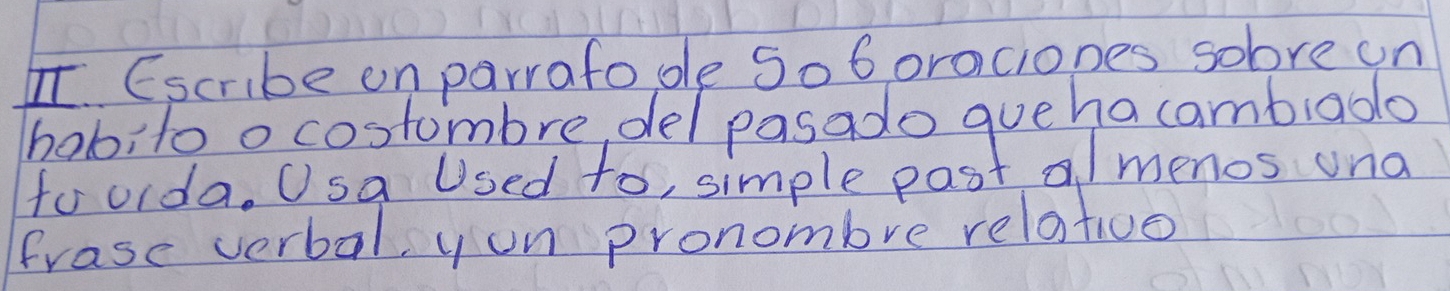 II. Escribe un parrafo de 5 o 6 oraciones sobre un
habito o costumbre, del pasado que ha cambiado
tu vida. Usa Used to, simple past al menos una
frase verbal. y un pronombre relativo